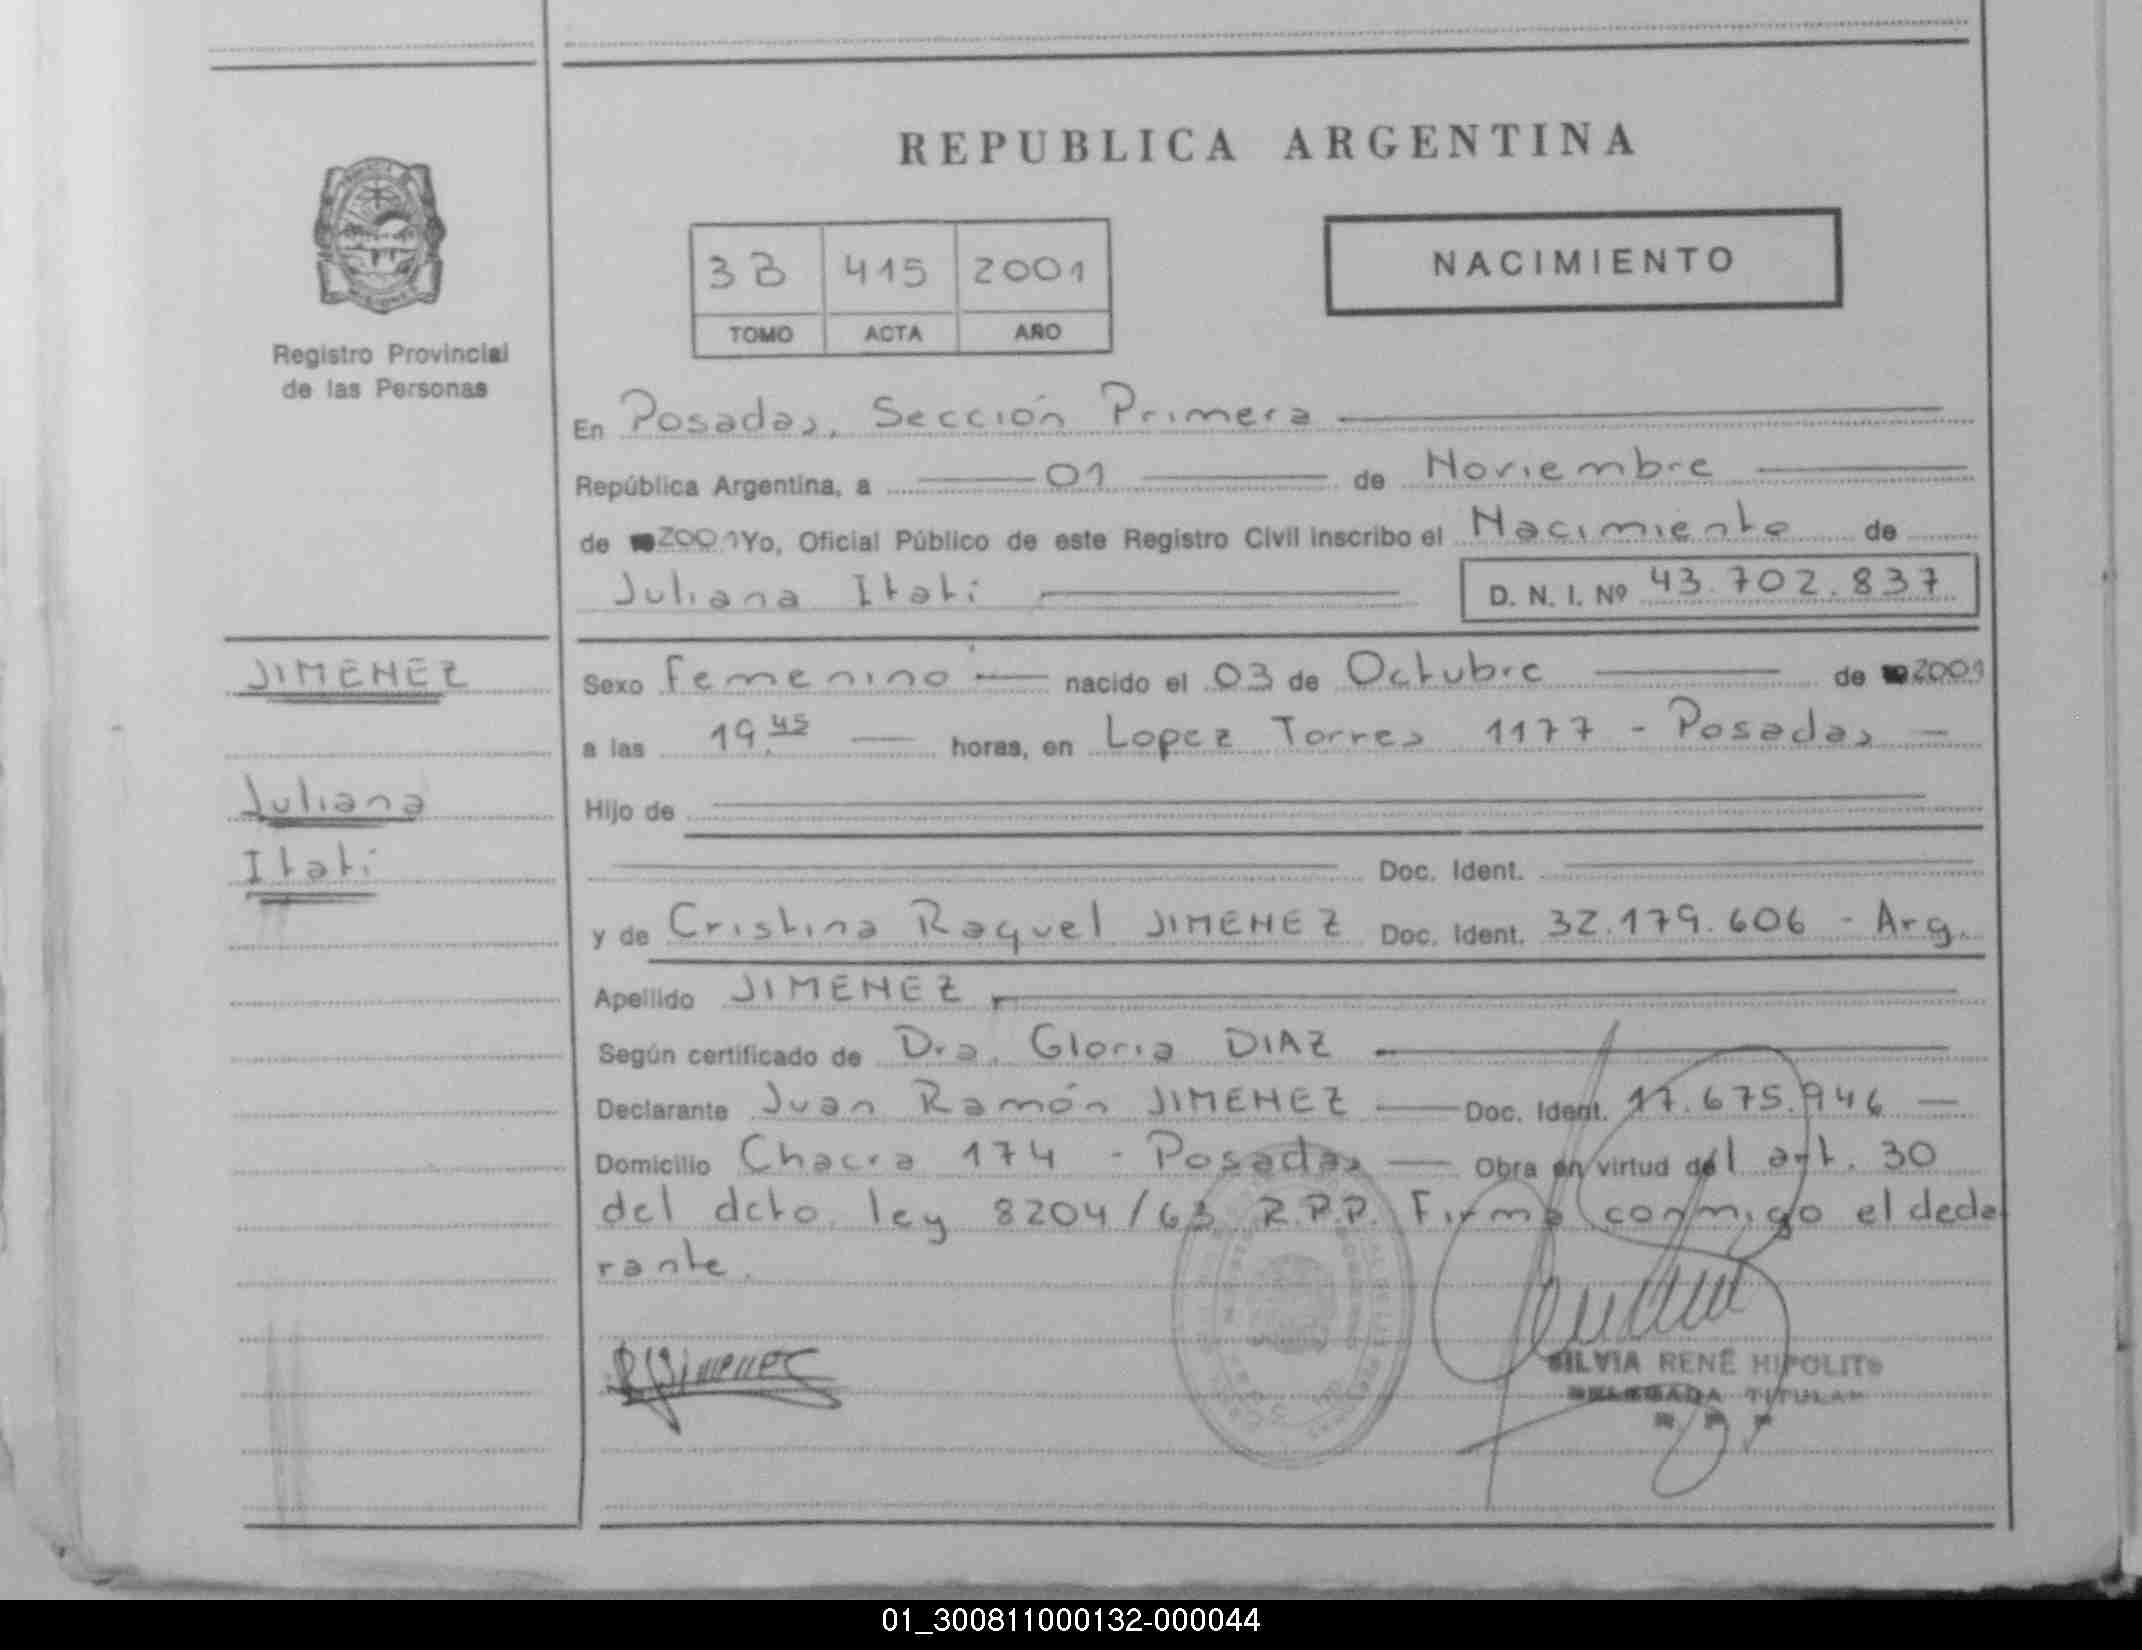 REPUBLICA ARGENTINA
3B 415 2001
TOMO ACTA AÑO
NACIMIENTO
Registro Provincial
de las Personas
En Posadas, Sección Primera
República Argentina, a 01 de Noviembre
de 2001 Yo, Oficial Público de este Registro Civil inscribo el Nacimiento de
Juliana Itati D. N. I. Nº 43.702.837
JIMENEZ
Juliana
Itati
Sexo Femenino nacido el 03 de Octubre de 2001
a las 19.45 horas, en Lopez Torres 1177 - Posadas
Hijo de
Doc. Ident.
y de Cristina Raquel JIMENEZ Doc. Ident. 32.179.606 - Arg.
Apellido JIMENEZ
Según certificado de Dra. Gloria DIAZ
Declarante Juan Ramón JIMENEZ Doc. Ident. 17.675.946
Domicilio Chacra 174 - Posadas Obra en virtud del art. 30
del dcto ley 8204/63 R.P.P. Firma conmigo el decla
rante.
SILVIA RENÉ HIPOLITO
DELEGADA TITULAR
01_300811000132-000044